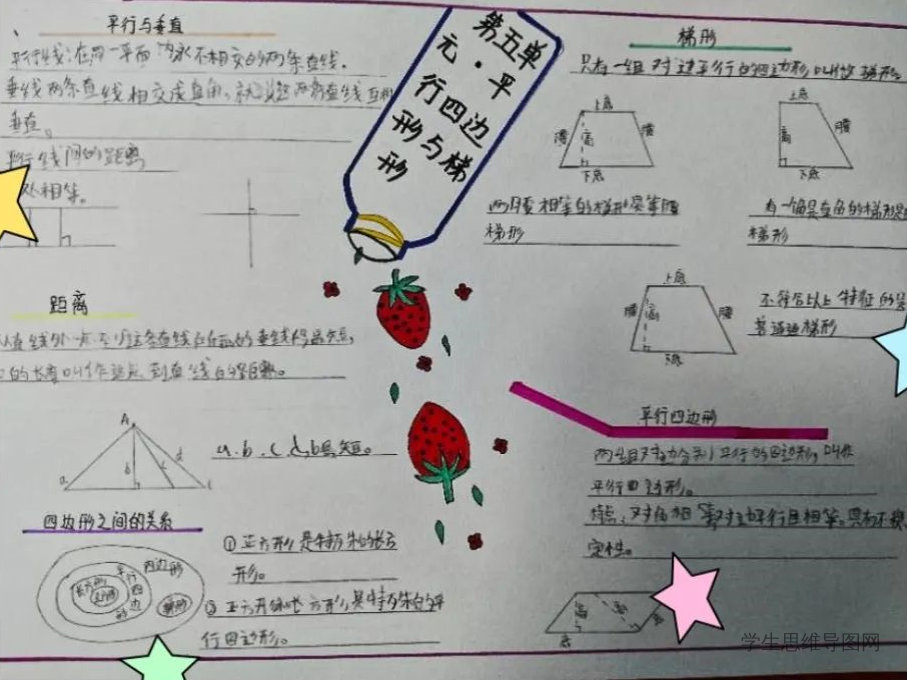 第五单
元·平
行四边
形与梯
形
平行与垂直
平行线:在同一平面内永不相交的两条直线。
垂线两条直线相交成直角,就说这两条直线互相
垂直。
平行线间的距离
处相等。
距离
从直线外一点到这条直线所画的垂线段最短,
的长度叫作这点到直线的距离。
A
a
b
c
d
a、b、c、d,b最短。
四边形之间的关系
四边形
平行四边
形
长方形
正方形
梯形
①正方形是特殊的长方
形。
②正方形和长方形是特殊的平
行四边形。
梯形
只有一组对边平行的四边形叫做梯形
上底
腰
高
腰
下底
上底
高
腰
下底
两腰相等的梯形是等腰
梯形
有一个角是直角的梯形是
梯形
上底
腰
高
腰
下底
不符合以上特征的是
普通梯形
平行四边形
两组对边分别平行的四边形,叫作
平行四边形。
特点:对角相等对边平行且相等。具有不稳
定性。
高
高
底
学生思维导图网